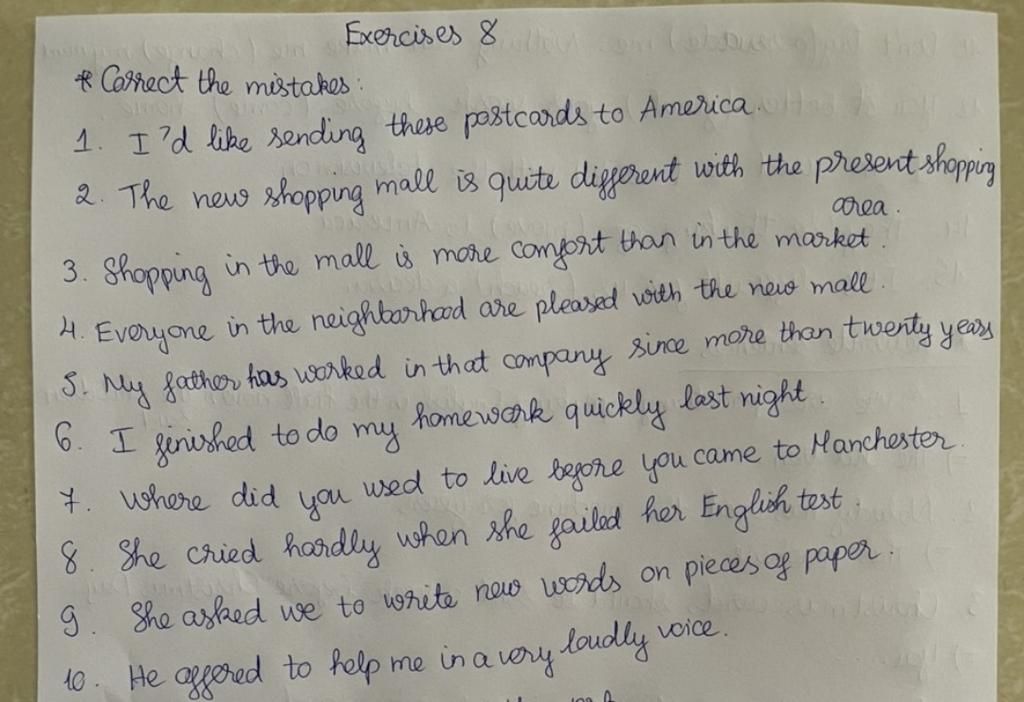 Exercises 8
* Correct the mistakes:
1. I'd like sending these postcards to America.
2. The new shopping mall is quite different with the present shopping
area.
3. Shopping in the mall is more comfort than in the market.
4. Everyone in the neighborhood are pleased with the new mall.
5. My father has worked in that company since more than twenty years
6. I finished to do my homework quickly last night.
7. Where did you used to live before you came to Manchester.
8. She cried hardly when she failed her English test.
9. She asked we to write new words on pieces of paper.
10. He offered to help me in a very loudly voice.